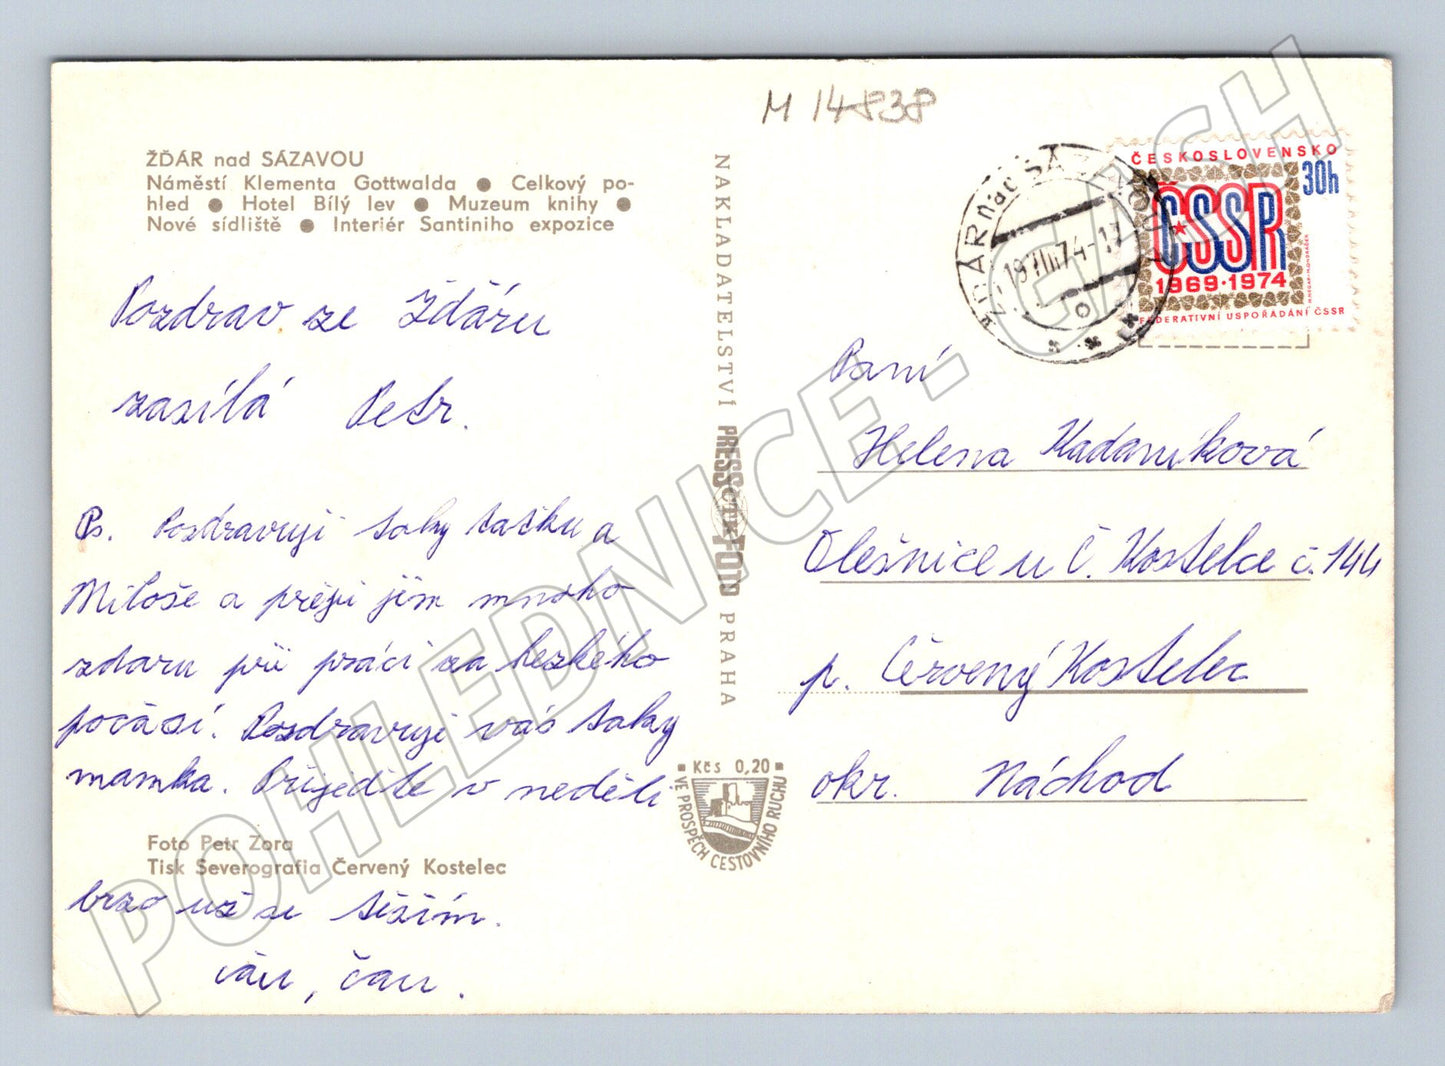 M 14838
ŽĎÁR nad SÁZAVOU
Náměstí Klementa Gottwalda ● Celkový po-
hled ● Hotel Bílý lev ● Muzeum knihy ●
Nové sídliště ● Interiér Santiniho expozice
Pozdrav ze Žďáru
zasílá Petr.
Ps. Pozdravuji taky taťku a
Miloše a přeji jim mnoho
zdaru při práci za hezkého
počásí. Pozdravuje vás taky
mamka. Přijeďte v neděli
Foto Petr Zora
Tisk Severografia Červený Kostelec
brzo už se těším.
čau, čau.
NAKLADATELSTVÍ PRESSFOTO PRAHA
Kčs 0,20
VE PROSPĚCH CESTOVNÍHO RUCHU
ŽĎÁR nad SÁZAVOU
18.VIII.74-17
ČESKOSLOVENSKO
30h
ČSSR
1969·1974
FEDERATIVNÍ USPOŘÁDÁNÍ ČSSR
Paní
Helena Kadaníková
Olešnice u Č. Kostelce č. 144
p. Červený Kostelec
okr. Náchod
POHLEDNICE - CASH